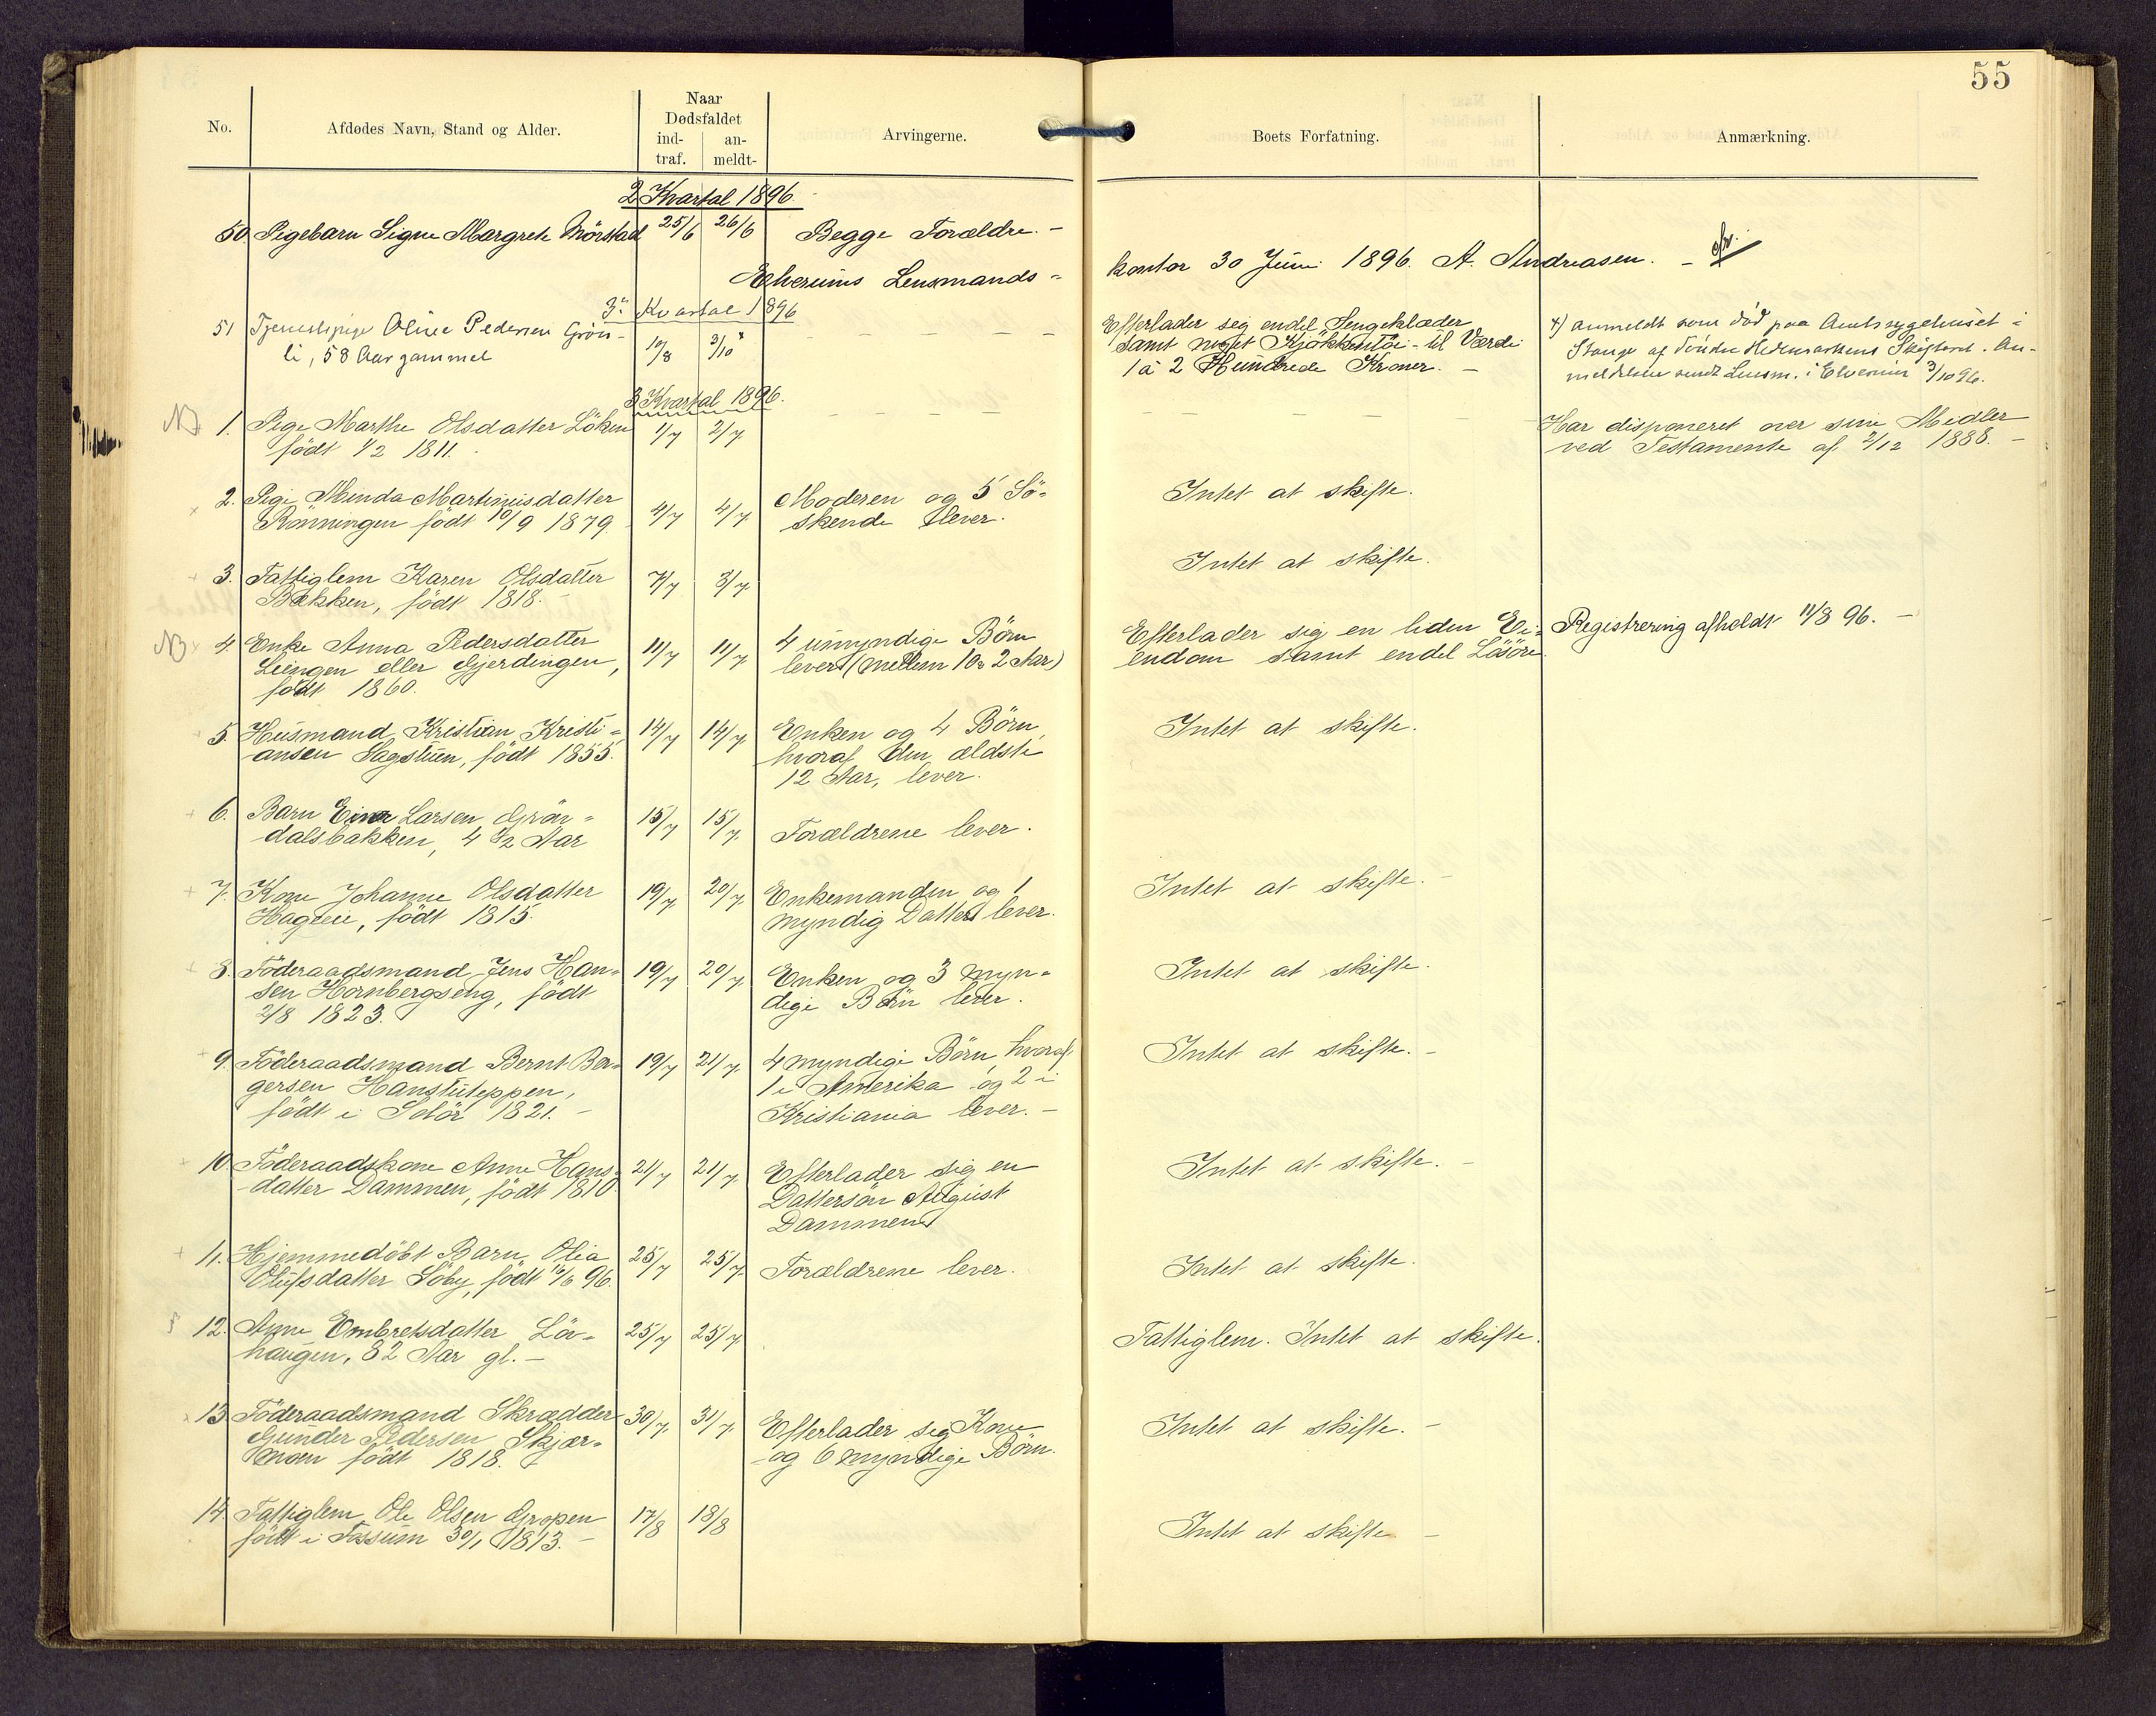 55
No.
Afdødes Navn, Stand og Alder.
Naar
Dødsfaldet
ind-
traf.
an-
meldt-
Arvingerne.
Boets Forfatning.
Anmærkning.
2 Kvartal 1896.
50 Pigebarn Signe Margrete Mörstad 25/6 26/6 Begge Forældre. -
Elverums Lensmands-
kontor 30 Juni 1896. A. Andreasen. -
3' Kvartal 1896
51 Tjenestepige Oline Pedersen Grön-
li, 58 Aar gammel 10/8 3/10 x
Efterlader sig endel Sengeklæder
samt noget Kjökkentöi - til Værdi
1 à 2 Hundrede Kroner. -
x) anmeldt som död paa Amtssygehuset i
Stange af Söndre Hedemarkens Skifteret. An-
meldelsen sendt Lensm. i Elverum 3/10 96.
3 Kvartal 1896.
NB 1. Pige Marthe Olsdatter Löken 1/7 2/7
födt 1/2 1811.
Har disponeret over sine Midler
ved Testamente af 2/12 1888. -
x 2. Pige Minda Martiniusdatter 4/7 4/7 Moderen og 5 Sö-
Rönningen födt 10/9 1879. skende lever.
Intet at skifte.
+ 3. Fattiglem Karen Olsdatter 7/7 3/7
Bækken, födt 1818. -
Intet at skifte.
NB x 4. Enke Anna Pedersdatter 11/7 11/7 4 umyndige Börn
Leingen eller Gjerdingen, lever (mellem 10 & 2 Aar)
födt 1860.
Efterlader sig en liden Ei-
endom samt endel Lösöre.
Registrering afholdt 11/8 96. -
5. Husmand Kristian Kristi- 14/7 14/7 Enken og 4 Börn,
ansen Sagstuen, födt 1855. hvoraf den ældste
12 Aar, lever.
Intet at skifte.
+ 6. Barn Einar Larsen Grön- 15/7 15/7
dalsbakken, 4 1/2 Aar Forældrene lever.
+ 7. Kone Johanne Olsdatter 19/7 20/7 Enkemanden og 1
Hagen, födt 1815. myndig Datter lever.
Intet at skifte. -
+ 8. Föderaadsmand Jens Han- 19/7 20/7 Enken og 3 myn-
sen Hornbergseng, födt dige Börn lever.
2/8 1823.
Intet at skifte.
+ 9. Föderaadsmand Bernt Ber- 19/7 21/7 4 myndige Börn, hvoraf
gersen Hanstuteppen, 1 i Amerika og 2 i
födt i Solör 1821. - Kristiania lever. -
Intet at skifte. -
+ 10. Föderaadskone Anne Hans- 21/7 21/7 Efterlader sig en
datter Dammen, födt 1810. Dattersön August
Dammen
Intet at skifte. -
+ 11. Hjemmedöbt Barn Olia 25/7 25/7 Forældrene lever.
Olufsdatter Söby, födt 16/6 96.
Intet at skifte.
12. Anne Embretsdatter Löv- 25/7 25/7
haugen, 82 Aar gl. -
Fattiglem. Intet at skifte.
x 13. Föderaadsmand Skrædder 30/7 31/7 Efterlader sig Kone
Gunder Pedersen Skjær- og 6 myndige Börn.
moen födt 1818.
Intet at skifte. -
14. Fattiglem Ole Olsen Gropen 17/8 18/8
födt i Fossum 30/1 1813. -
Intet at skifte -